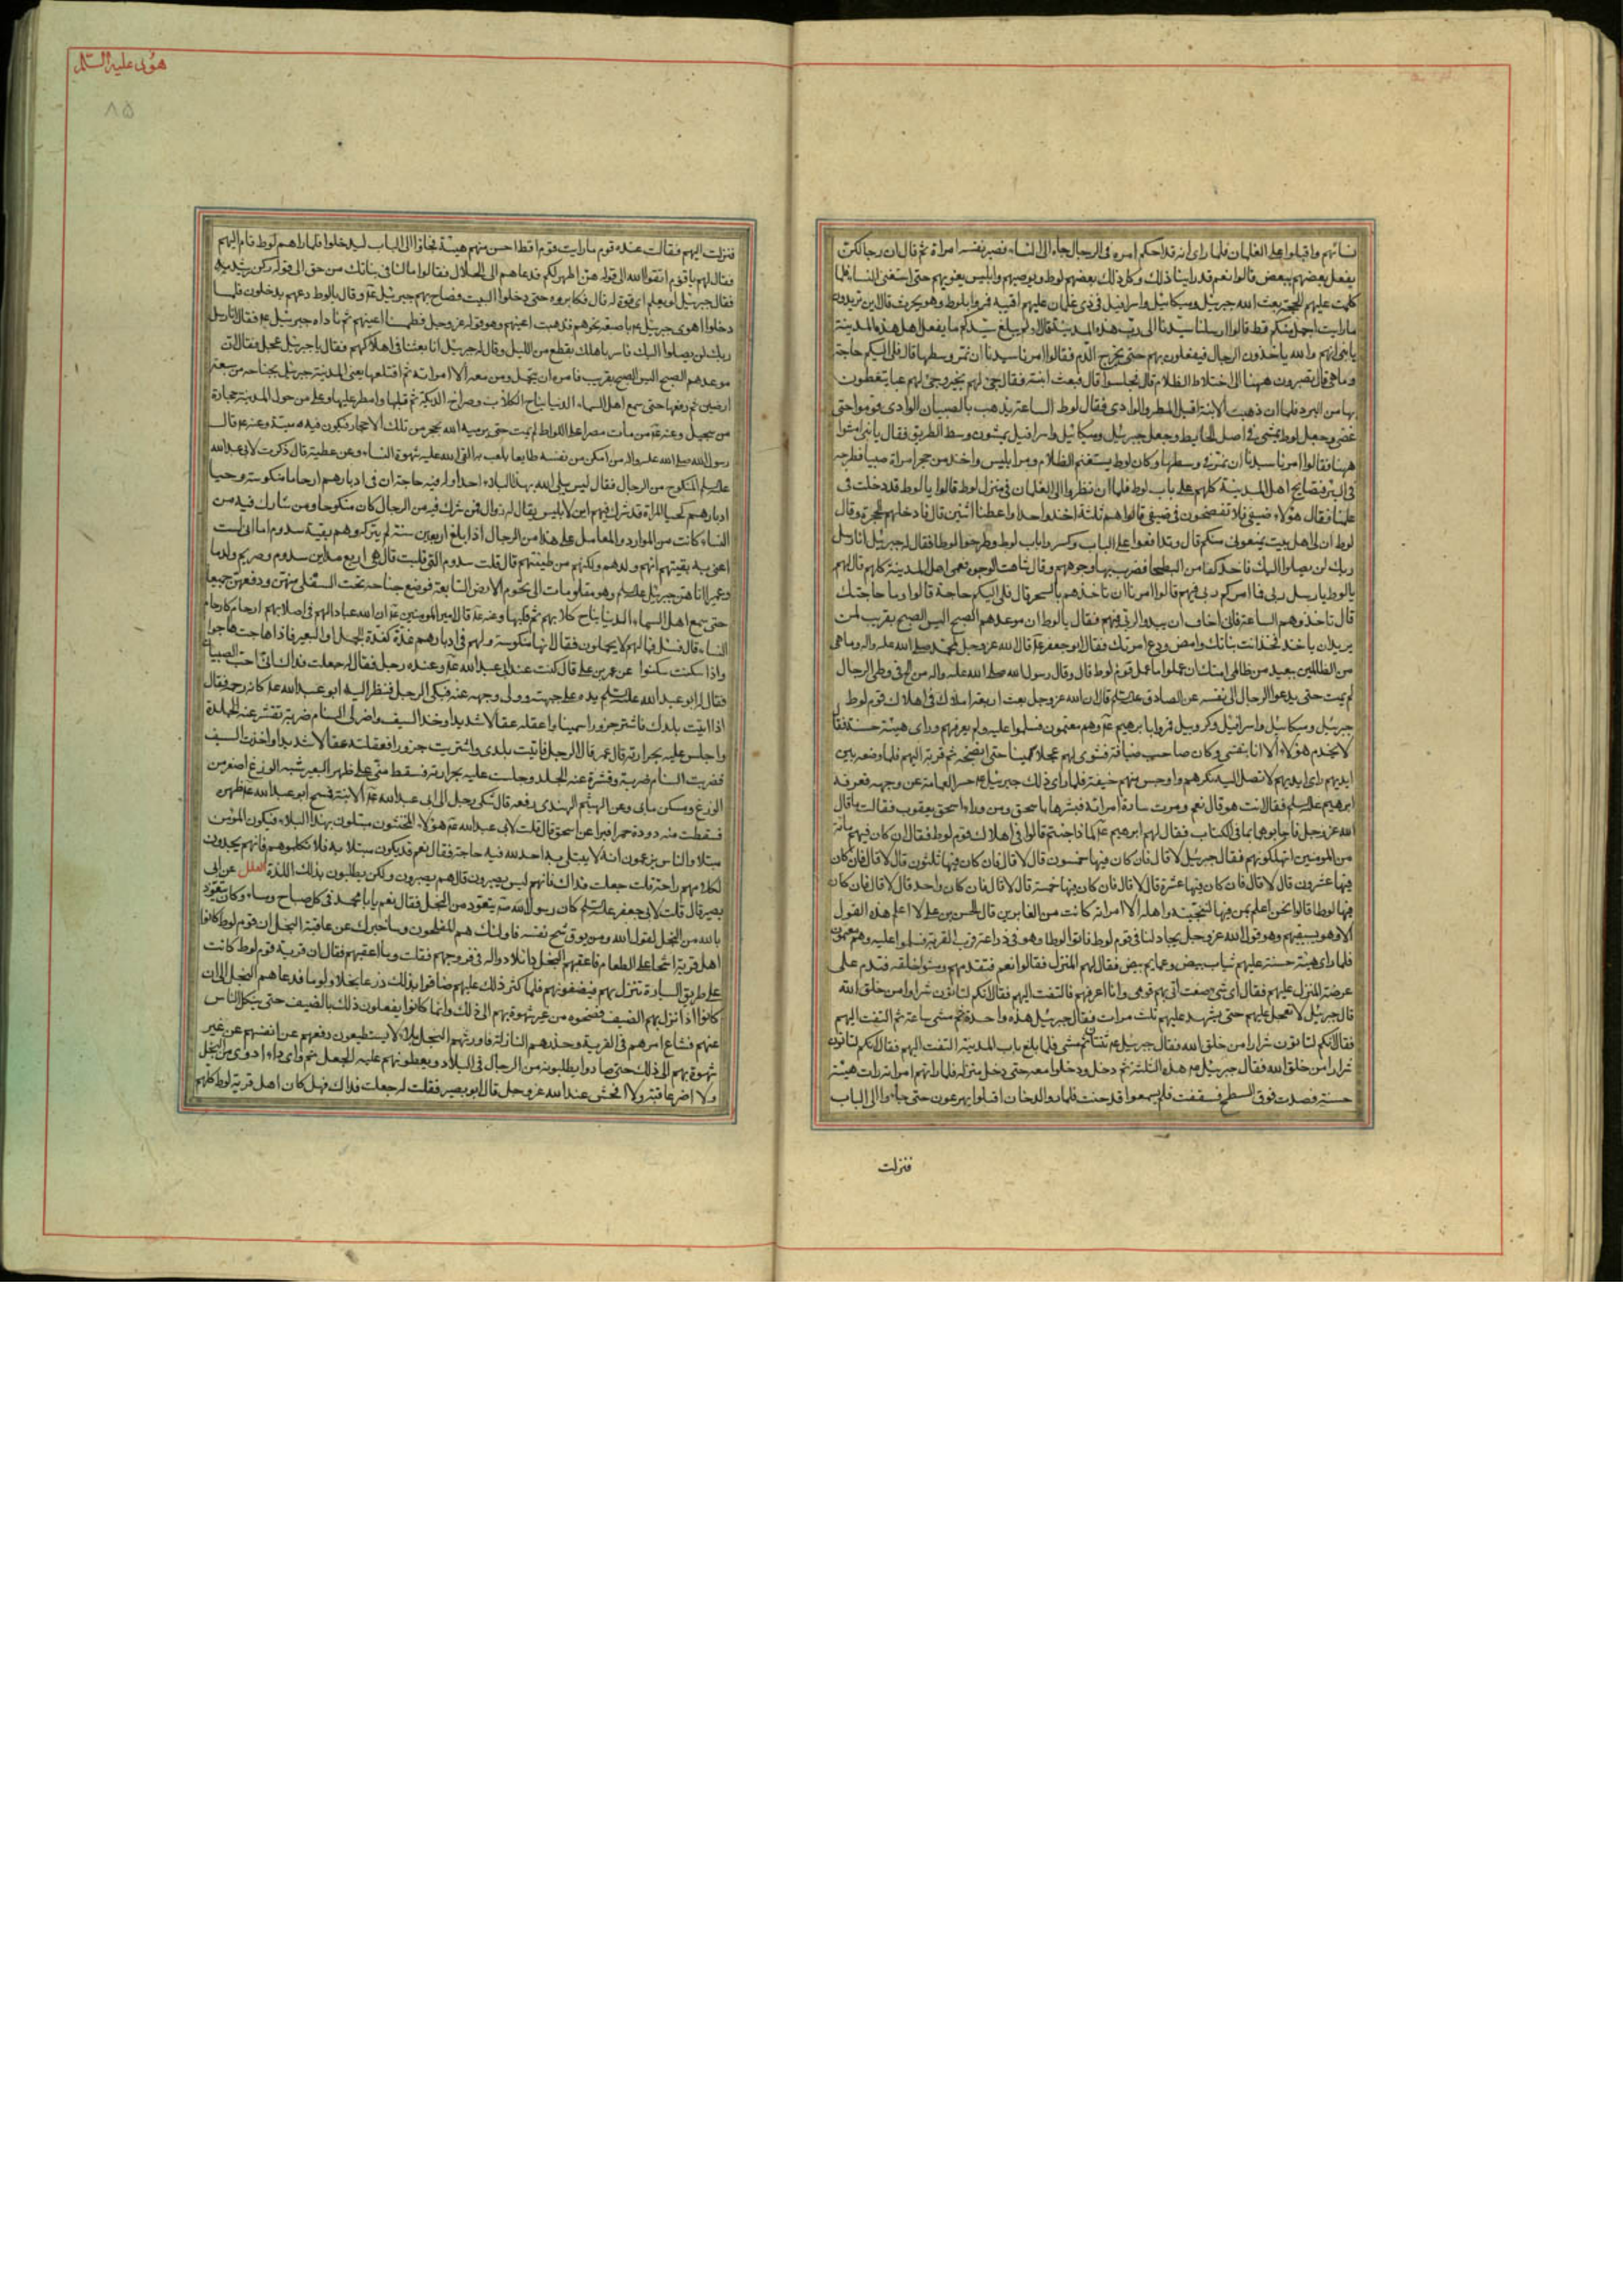 نسائهم واقبلوا على الغلمان فلما رأى انه قد احكم امره فى الرجال جاء الى النساء فصير نفسه امراة ثم قال ان رجالكن
يفعل بعضهم ببعض قالوا نعم قد راينا ذلك وكل ذلك يعظهم لوط ويوصيهم وابليس يغويهم حتى استغنى النساء فلما
كملت عليهم الحجة بعث الله جبرئيل وميكائيل واسرافيل فى زى غلمان عليهم اقبية فمروا بلوط وهو يحرث قال اين تريدون
ما رايت اجمل منكم قط قالوا ارسلنا سيدنا الى رب هذه المدينة قال اولم يبلغ سيدكم ما يفعل اهل هذه المدينة
يا بنى انهم والله ياخذون الرجال فيفعلون بهم حتى يخرج الدم فقالوا امرنا سيدنا ان نمر وسطها قال فلى اليكم حاجة
وما هى قال تصبرون ههنا الى اختلاط الظلام قال فجلسوا قال فبعث ابنته فقال جيئى لهم بخبز وجيئى لهم عبا يتغطون
بها من البرد فلما ان ذهبت الابنة اقبل المطر والوادى فقال لوط الساعة يذهب بالصبيان الوادى قوموا حتى
نمضى وجعل لوط يمشى فى اصل الحايط وجعل جبرئيل وميكائيل واسرافيل يمشون وسط الطريق فقال يا بنى امشوا
ههنا فقالوا امرنا سيدنا ان نمر فى وسطها وكان لوط يستغنم الظلام ومر ابليس واخذ من حجر امراة صبيا فطرحه
فى البئر فتصايح اهل المدينة كلهم على باب لوط فلما ان نظروا الى الغلمان فى منزل لوط قالوا يا لوط قد دخلت فى
عملنا فقال هؤلاء ضيفى فلا تفضحون فى ضيفى قالوا هم ثلثة اخذ واحدا واعطنا اثنين قال فادخلهم الحجرة وقال
لوط ان لى اهل بيت يمنعونى منكم قال وتدافعوا على الباب وكسروا باب لوط وطرحوا لوطا فقال له جبرئيل انا رسل
ربك لن يصلوا اليك فاخذ كفا من البطحا فضرب بها وجوههم وقال شاهت الوجوه فعمى اهل المدينة كلهم قال لهم
يا لوط يا رسل ربى فما امركم ربى فيهم قالوا امرنا ان ناخذهم بالسحر قال فلى اليكم حاجة قالوا وما حاجتك
قال تاخذوهم الساعة فانى اخاف ان يبدو لربى فيهم فقال يا لوط ان موعدهم الصبح اليس الصبح بقريب لمن
يريد ان ياخذ فخذ انت بناتك وامض ودع امرتك فقال ابو جعفر عه قال الله عز وجل لمحمد صلى الله عليه واله وما هى
من الظالمين ببعيد من ظالمى امتك ان عملوا ما عمل قوم لوط قال وقال رسول الله صلى الله عليه واله من الح فى وطى الرجال
لم يمت حتى يدعو الرجال الى نفسه عن الصادق عليه السلم قال ان الله عز وجل بعث اربعة املاك فى اهلاك قوم لوط
جبرئيل وميكائيل واسرافيل وكروبيل فمروا بابرهيم عم وهم معتمون فسلموا عليه ولم يعرفهم وراى هيئة حسنة فقا
لا يخدم هؤلاء الا انا بنفسى وكان صاحب ضيافة فشوى لهم عجلا سمينا حتى انضجه ثم قربه اليهم فلما وضعه بين
ايديهم راى ايديهم لا تصل اليه نكرهم واوجس منهم خيفة فلما راى ذلك جبرئيل عم حسر العمامة عن وجهه فعرفه
ابرهيم عليه السلم فقال انت هو قال نعم ومرت سارة امراته فبشرها باسحق ومن وراء اسحق يعقوب فقالت ما قال
الله عز وجل فاجابوها بما فى الكتاب فقال لهم ابرهيم عم لما ذا جئتم قالوا فى اهلاك قوم لوط فقال ان كان فيهم مائة
من المومنين اتهلكونهم فقال جبرئيل لا قال فان كان فيها خمسون قال لا قال فان كان فيها ثلثون قال لا قال فان كان
فيها عشرون قال لا قال فان كان فيها عشرة قال لا قال فان كان فيها خمسة قال لا قال فان كان واحد قال لا قال فان كان
فيها لوطا قالوا نحن اعلم بمن فيها لننجينه واهله الا امراته كانت من الغابرين قال الحسن بن على لا اعلم هذا القول
الا وهو يستبقيهم وهو قول الله عز وجل يجادلنا فى قوم لوط فاتوا لوطا وهو فى زراعة قرب القرية فسلموا عليه وهم معتمون
فلما راى هيئة حسنة عليهم ثياب بيض وعمايم بيض فقال لهم المنزل فقالوا نعم فتقدمهم ومشوا خلفه فتندم على
عرضه المنزل عليهم فقال اى شىء صنعت آتى بهم قومى وانا اعرفهم فالتفت اليهم فقال انكم لتاتون شرارا من خلق الله
قال جبرئيل لا تعجل عليهم حتى يشهد عليهم ثلث مرات فقال جبرئيل هذه واحدة ثم مشى ساعة ثم التفت اليهم
فقال انكم لتاتون شرارا من خلق الله فقال جبرئيل عم ثنتان ثم مشى فلما بلغ باب المدينة التفت اليهم فقال انكم لتاتون
شرارا من خلق الله فقال جبرئيل عم هذه الثلثة ثم دخل ودخلوا معه حتى دخل منزله فلما راتهم امراته رات هيئة
حسنة فصعدت فوق السطح فصفقت فلم يسمعوا فدخنت فلما راوا الدخان اقبلوا يهرعون حتى جاءوا الى الباب
فنزلت
هود عليه السلم
٨٥
فنزلت اليهم فقالت عنده قوم ما رايت قوما قط احسن منهم هيئة فجاؤا الى الباب ليدخلوا فلما راهم لوط قام اليهم
فقال لهم يا قوم اتقوا الله الى قوله هن اطهر لكم فدعاهم الى الحلال فقالوا ما لنا فى بناتك من حق الى قوله ركن شديد
فقال جبرئيل لو يعلم اى قوة له قال فكابروه حتى دخلوا البيت فصاح بهم جبرئيل عم وقال يا لوط دعهم يدخلون فلما
دخلوا اهوى جبرئيل عم باصبعه نحوهم فذهبت اعينهم وهو قوله عز وجل فطمسنا اعينهم ثم ناداه جبرئيل عم فقال انا رسل
ربك لن يصلوا اليك فاسر باهلك بقطع من الليل وقال له جبرئيل انا بعثنا فى اهلاكهم فقال يا جبرئيل عجل فقال ان
موعدهم الصبح اليس الصبح بقريب فامره ان يتحمل ومن معه الا امراته ثم اقتلعها يعنى المدينة جبرئيل بجناحه من سبعة
ارضين ثم رفعها حتى سمع اهل السماء الدنيا نباح الكلاب وصراخ الديكة ثم قلبها وامطر عليها وعلى من حول المدينة حجارة
من سجيل وعنه عم من مات مصرا على اللواط لم يمت حتى يرميه الله بحجر من تلك الاحجار فيكون فيه منيته وعنه عم قال
رسول الله صلى الله عليه واله من امكن من نفسه طايعا يلعب به القى الله عليه شهوة النساء وعن عطية قال ذكرت لابى عبد الله
عليه السلم المنكوح من الرجال فقال ليس يبلى الله بهذا البلاء احدا وله فيه حاجة ان فى ادبارهم ارحاما منكوسة وحيا
ادبارهم كحيا المراة قد شرك فيهم ابن لابليس يقال له زوال فمن شرك فيه من الرجال كان منكوحا ومن شارك فيه من
النساء كانت من الموارد والعامل على هذا من الرجال اذا بلغ اربعين سنة لم يتركه وهم بقية سدوم اما انى لست
اعنى به بقيتهم انهم ولدهم ولكنهم من طينتهم قال قلت سدوم التى قلبت قال هى اربع مداين سدوم وصريم ولدما
وعميرا اتاهن جبرئيل عليه السلم وهو مقلوعات الى تخوم الارض السابعة فوضع جناحه تحت السفلى منهن ورفعهن جميعا
حتى سمع اهل السماء الدنيا نباح كلابهم ثم قلبها وعنه عم قال امير المومنين عم ان الله عبادا لهم فى اصلابهم ارحام كارحام
النساء قال فسئل فما لهم لا يحملون فقال انها منكوسة ولهم فى ادبارهم غدة كغدة الجمل او البعير فاذا هاجت هاجوا
واذا سكنت سكنوا عن عمر بن على قال كنت عند ابى عبد الله عم وعنده رجل فقال له جعلت فداك انى احب الصبيان
فقال له ابو عبد الله عليه السلم يده على جبهته وولى وجهه عنه فبكى الرجل فنظر اليه ابو عبد الله عم كانه رحمه فقال
اذا اتيت بلدك فاشتر جزورا سمينا واعقله عقالا شديدا وخذ السيف واضرب السنام ضربة تقشر عنه الجلدة
واجلس عليه بحرارته قال عمر قال الرجل فاتيت بلدى واشتريت جزورا فعقلته عقالا شديدا واخذت السيف
فضربت السنام ضربة وقشرت عنه الجلد وجلست عليه بحرارته فسقط منى على ظهر البعير شبه الوزغ اصغر من
الوزغ وسكن ما بى وعن الهيثم الهندى رفعه قال شكى رجل الى ابى عبد الله عم الابنة فمسح ابو عبد الله عم ظهره
فسقطت منه دودة حمرا فبرا عن اسحق قال قلت لابى عبد الله عم هؤلاء المخنثون مبتلون بهذا البلاء فيكون المؤمن
مبتلا والناس يزعمون انه لا يبتلى به احد لله فيه حاجة فقال نعم قد يكون مبتلا به فلا تكلموهم فانهم يجدون
لكلامهم راحة قلت جعلت فداك فانهم ليس يصبرون قال هم يصبرون ولكن يطلبون بذلك اللذة العلل عن ابى
بصير قال قلت لابى جعفر عليه السلم كان رسول الله ص يتعوذ من البخل فقال نعم يا با محمد فى كل صباح ومساء وكان يتعوذ
بالله من البخل لقول الله ومن يوق شح نفسه فاولئك هم المفلحون وساخبرك عن عاقبة البخل ان قوم لوط كانوا
اهل قرية اشحا على الطعام فاعقبهم البخل داء لا دوا له فى فروجهم فقلت وما اعقبهم فقال ان قرية قوم لوط كانت
على طريق السيارة تنزل بهم فيضيفونهم فلما كثر ذلك عليهم ضاقوا بذلك ذرعا بخلا ولوما فدعاهم البخل الى ان
كانوا اذا نزل بهم الضيف فضحوه من غير شهوة بهم الى ذلك وانما كانوا يفعلون ذلك بالضيف حتى ينكل الناس
عنهم فشاع امرهم فى القرية وحذرهم النازلة فاورثهم البخل بلاء لا يستطيعون دفعهم عن انفسهم عن غير
شهوة بهم الى ذلك حتى صاروا يطلبونه من الرجال فى البلاد ويعطونهم عليه الجعل ثم فاى داء ادوى من البخل
ولا اضر عاقبة ولا افحش عند الله عز وجل قال ابو بصير فقلت له جعلت فداك فهل كان اهل قرية لوط كلهم